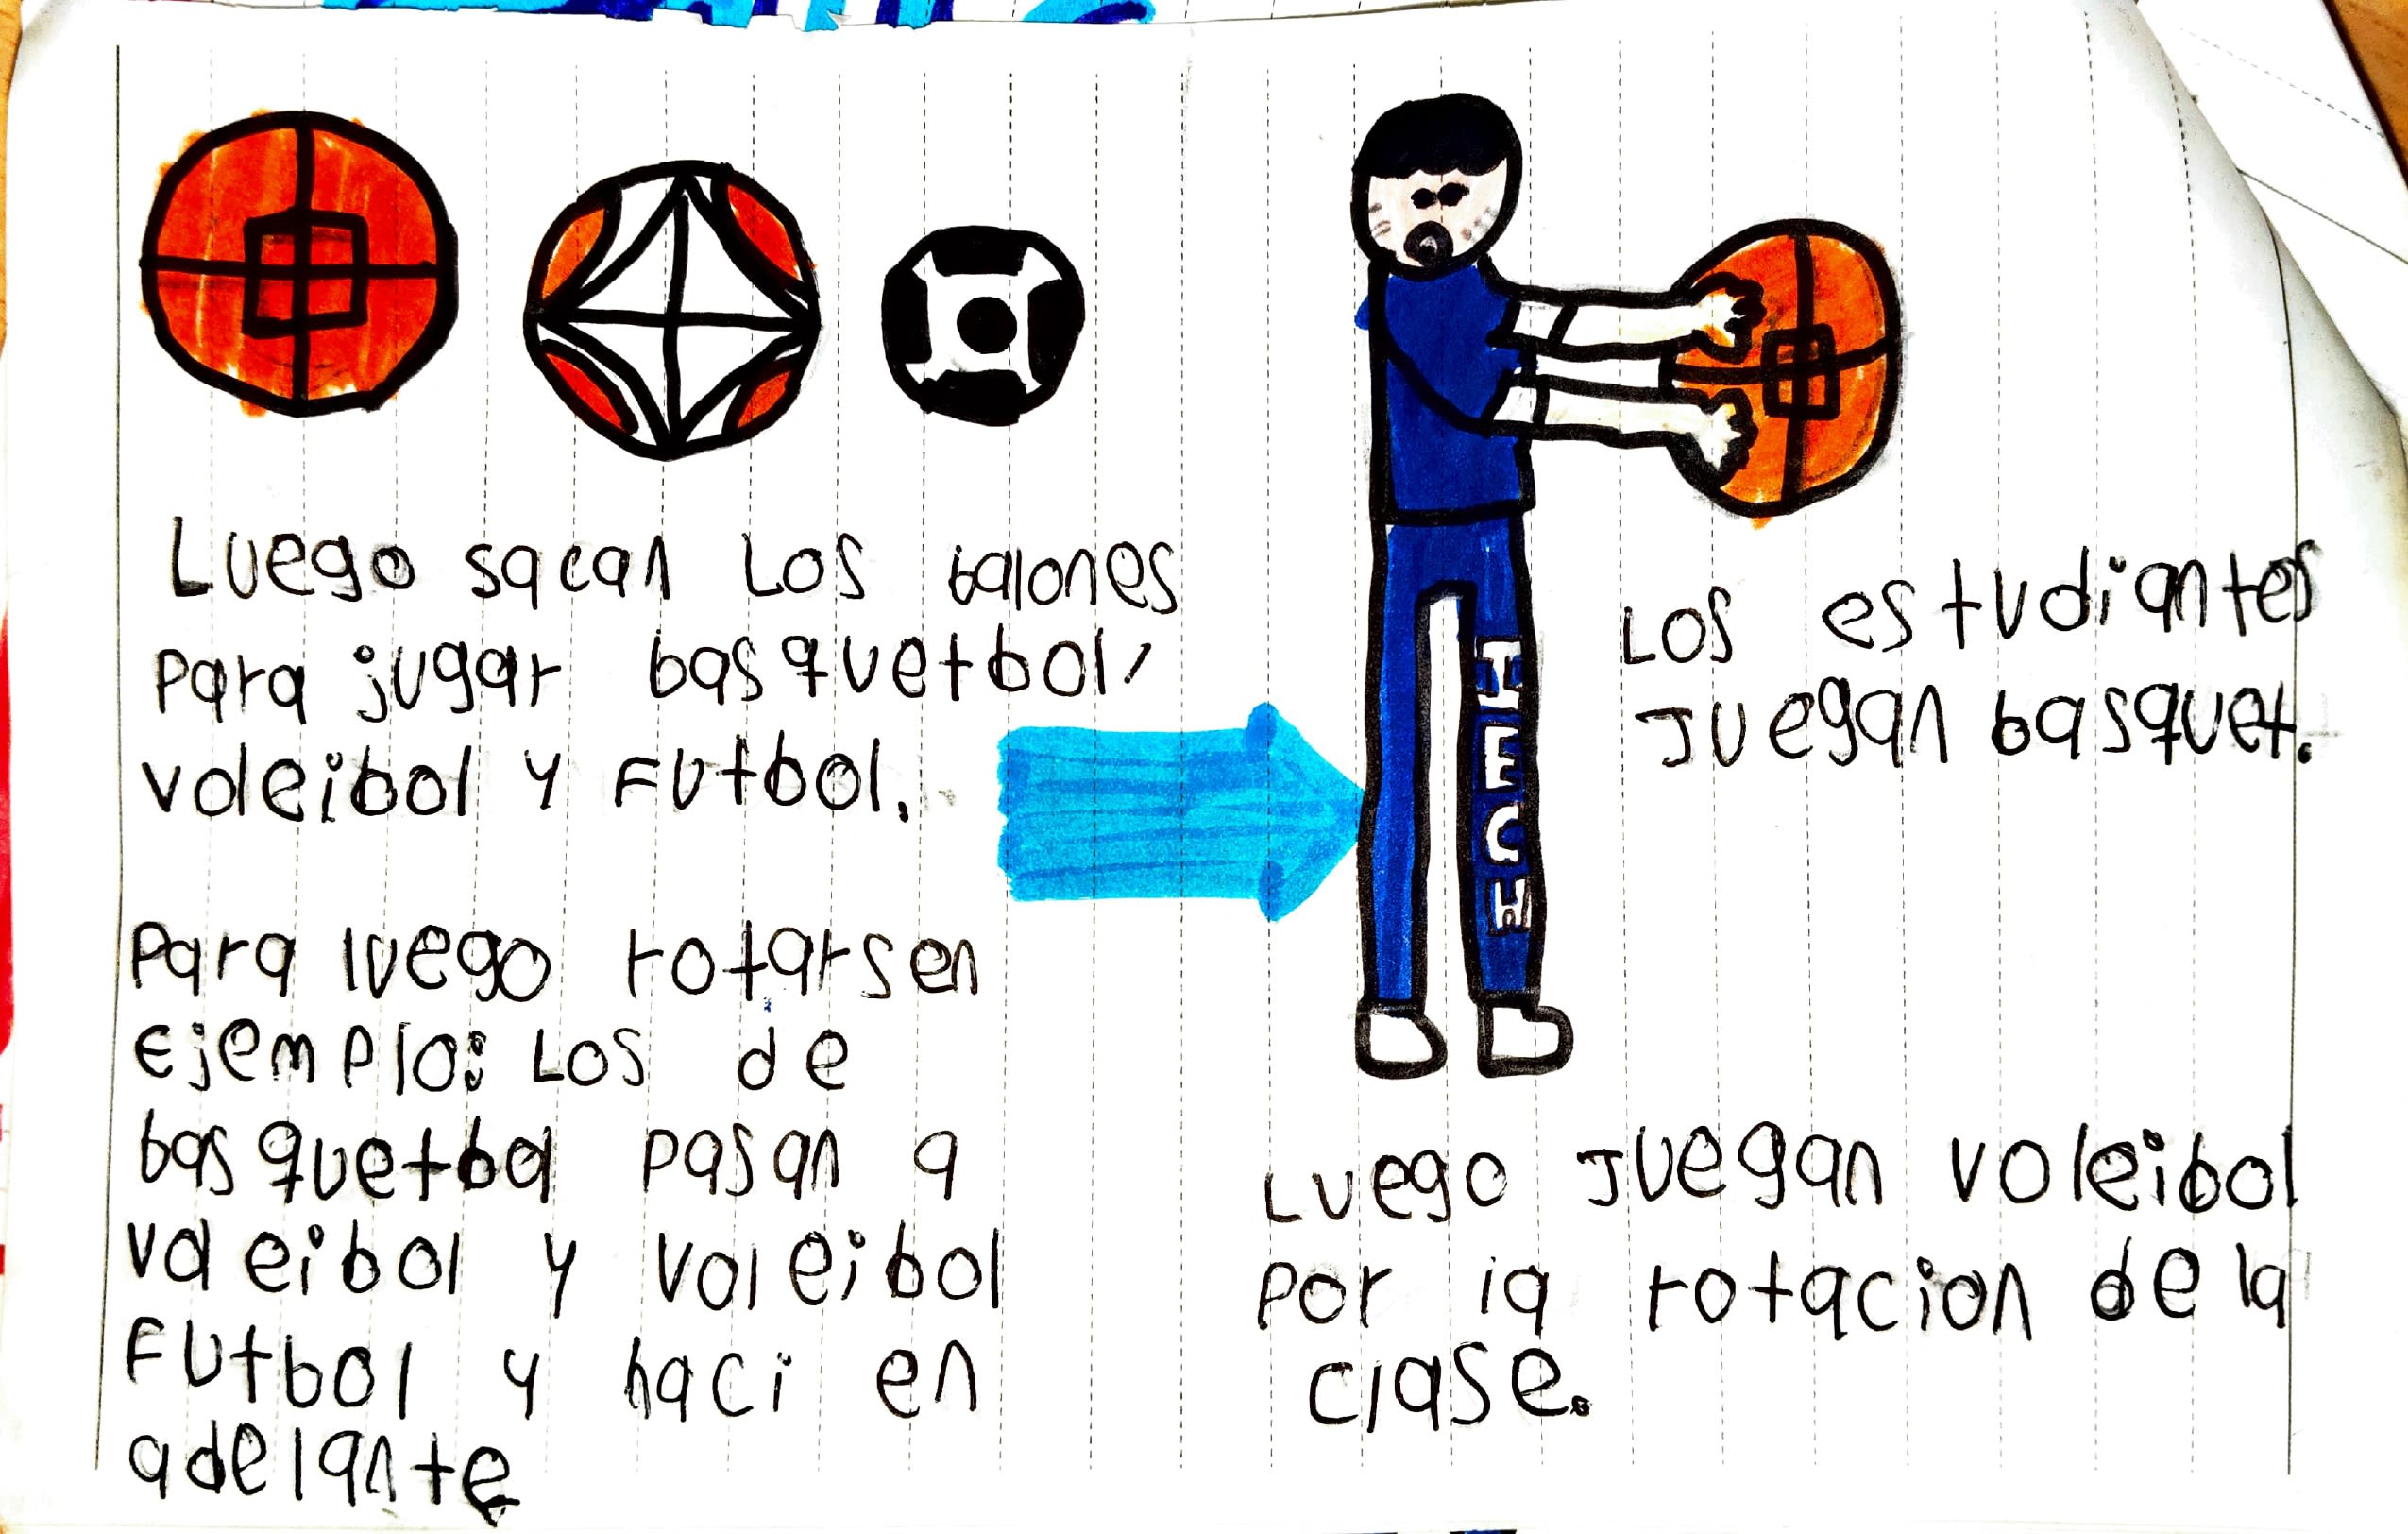 Luego sacan Los balones
para jugar basquetbol,
voleibol y Futbol.
Para luego rotarsen
Ejemplo: Los de
basquetbol pasan a
voleibol y voleibol
Futbol y haci en
adelante
IECH
Los estudiantes
Juegan basquet.
Luego Juegan voleibol
por la rotacion de la
clase.